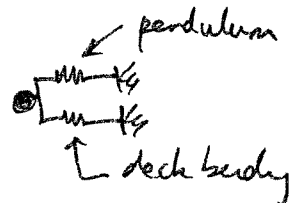 pendulum
deck bending